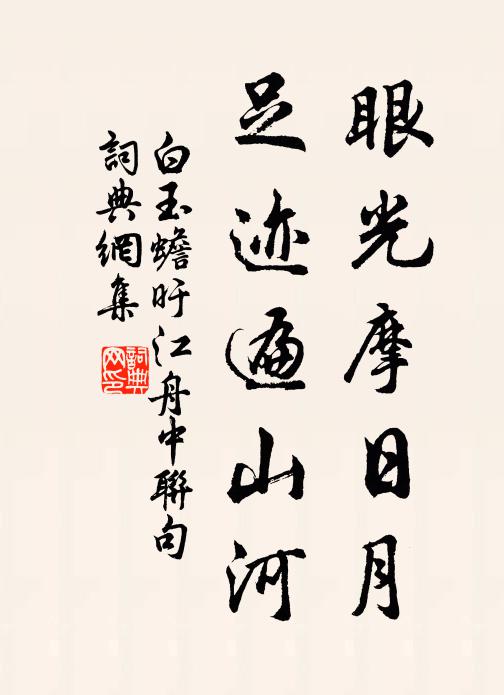 眼光摩日月
足迹遍山河
白玉蟾旴江舟中聯句
詞典網集
詞典网印